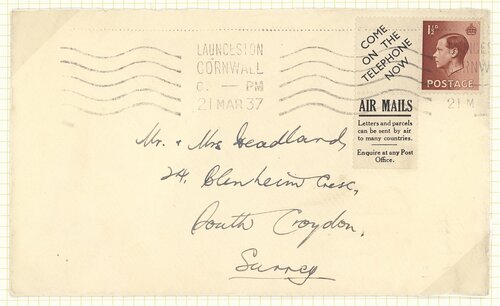 LAUNCESTON
CORNWALL
6. — PM
21 MAR 37
COME
ON THE
TELEPHONE
NOW
1½D
POSTAGE
21 M
AIR MAILS
Letters and parcels
can be sent by air
to many countries.
Enquire at any Post
Office.
Mr. & Mrs Headland,
24, Blenheim Cresc,
South Croydon,
Surrey